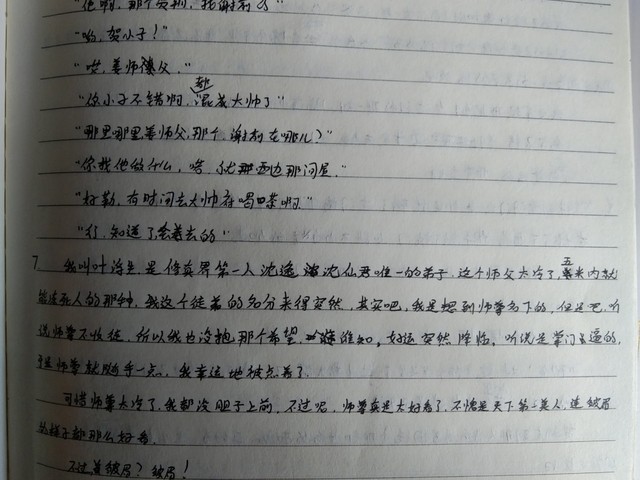 "是啊,那个贺圳,我谢
"哟,贺小子!"
"哎,姜师傅父。"
"你小子不错啊,都混成大帅了"
"哪里哪里姜师父,那个,谢 在哪儿?"
"你找他做什么,喏,就西边那间屋。"
"好勒,有时间去大帅府喝口茶啊。"
"行,知道了会着去的"
7 我叫叶浮生,是修真界第一人沈逸 沈仙君唯一的弟子,这个师父太冷了,五米内就
能冻死人的那种,我这个徒弟的名分来得突然,其实吧,我是想到师尊名下的,但是吧,听
说师尊不收徒,所以我也没抱那个希望,谁知,好运突然降临,听说是掌门 逼的,
于是师尊就随手一点,我幸运地被点着了。
可惜师尊太冷了,我都没胆子上前,不过呢,师尊真是太好看了,不愧是天下第一美人,连皱眉
的样子都那么好看。
不过等皱眉?皱眉!